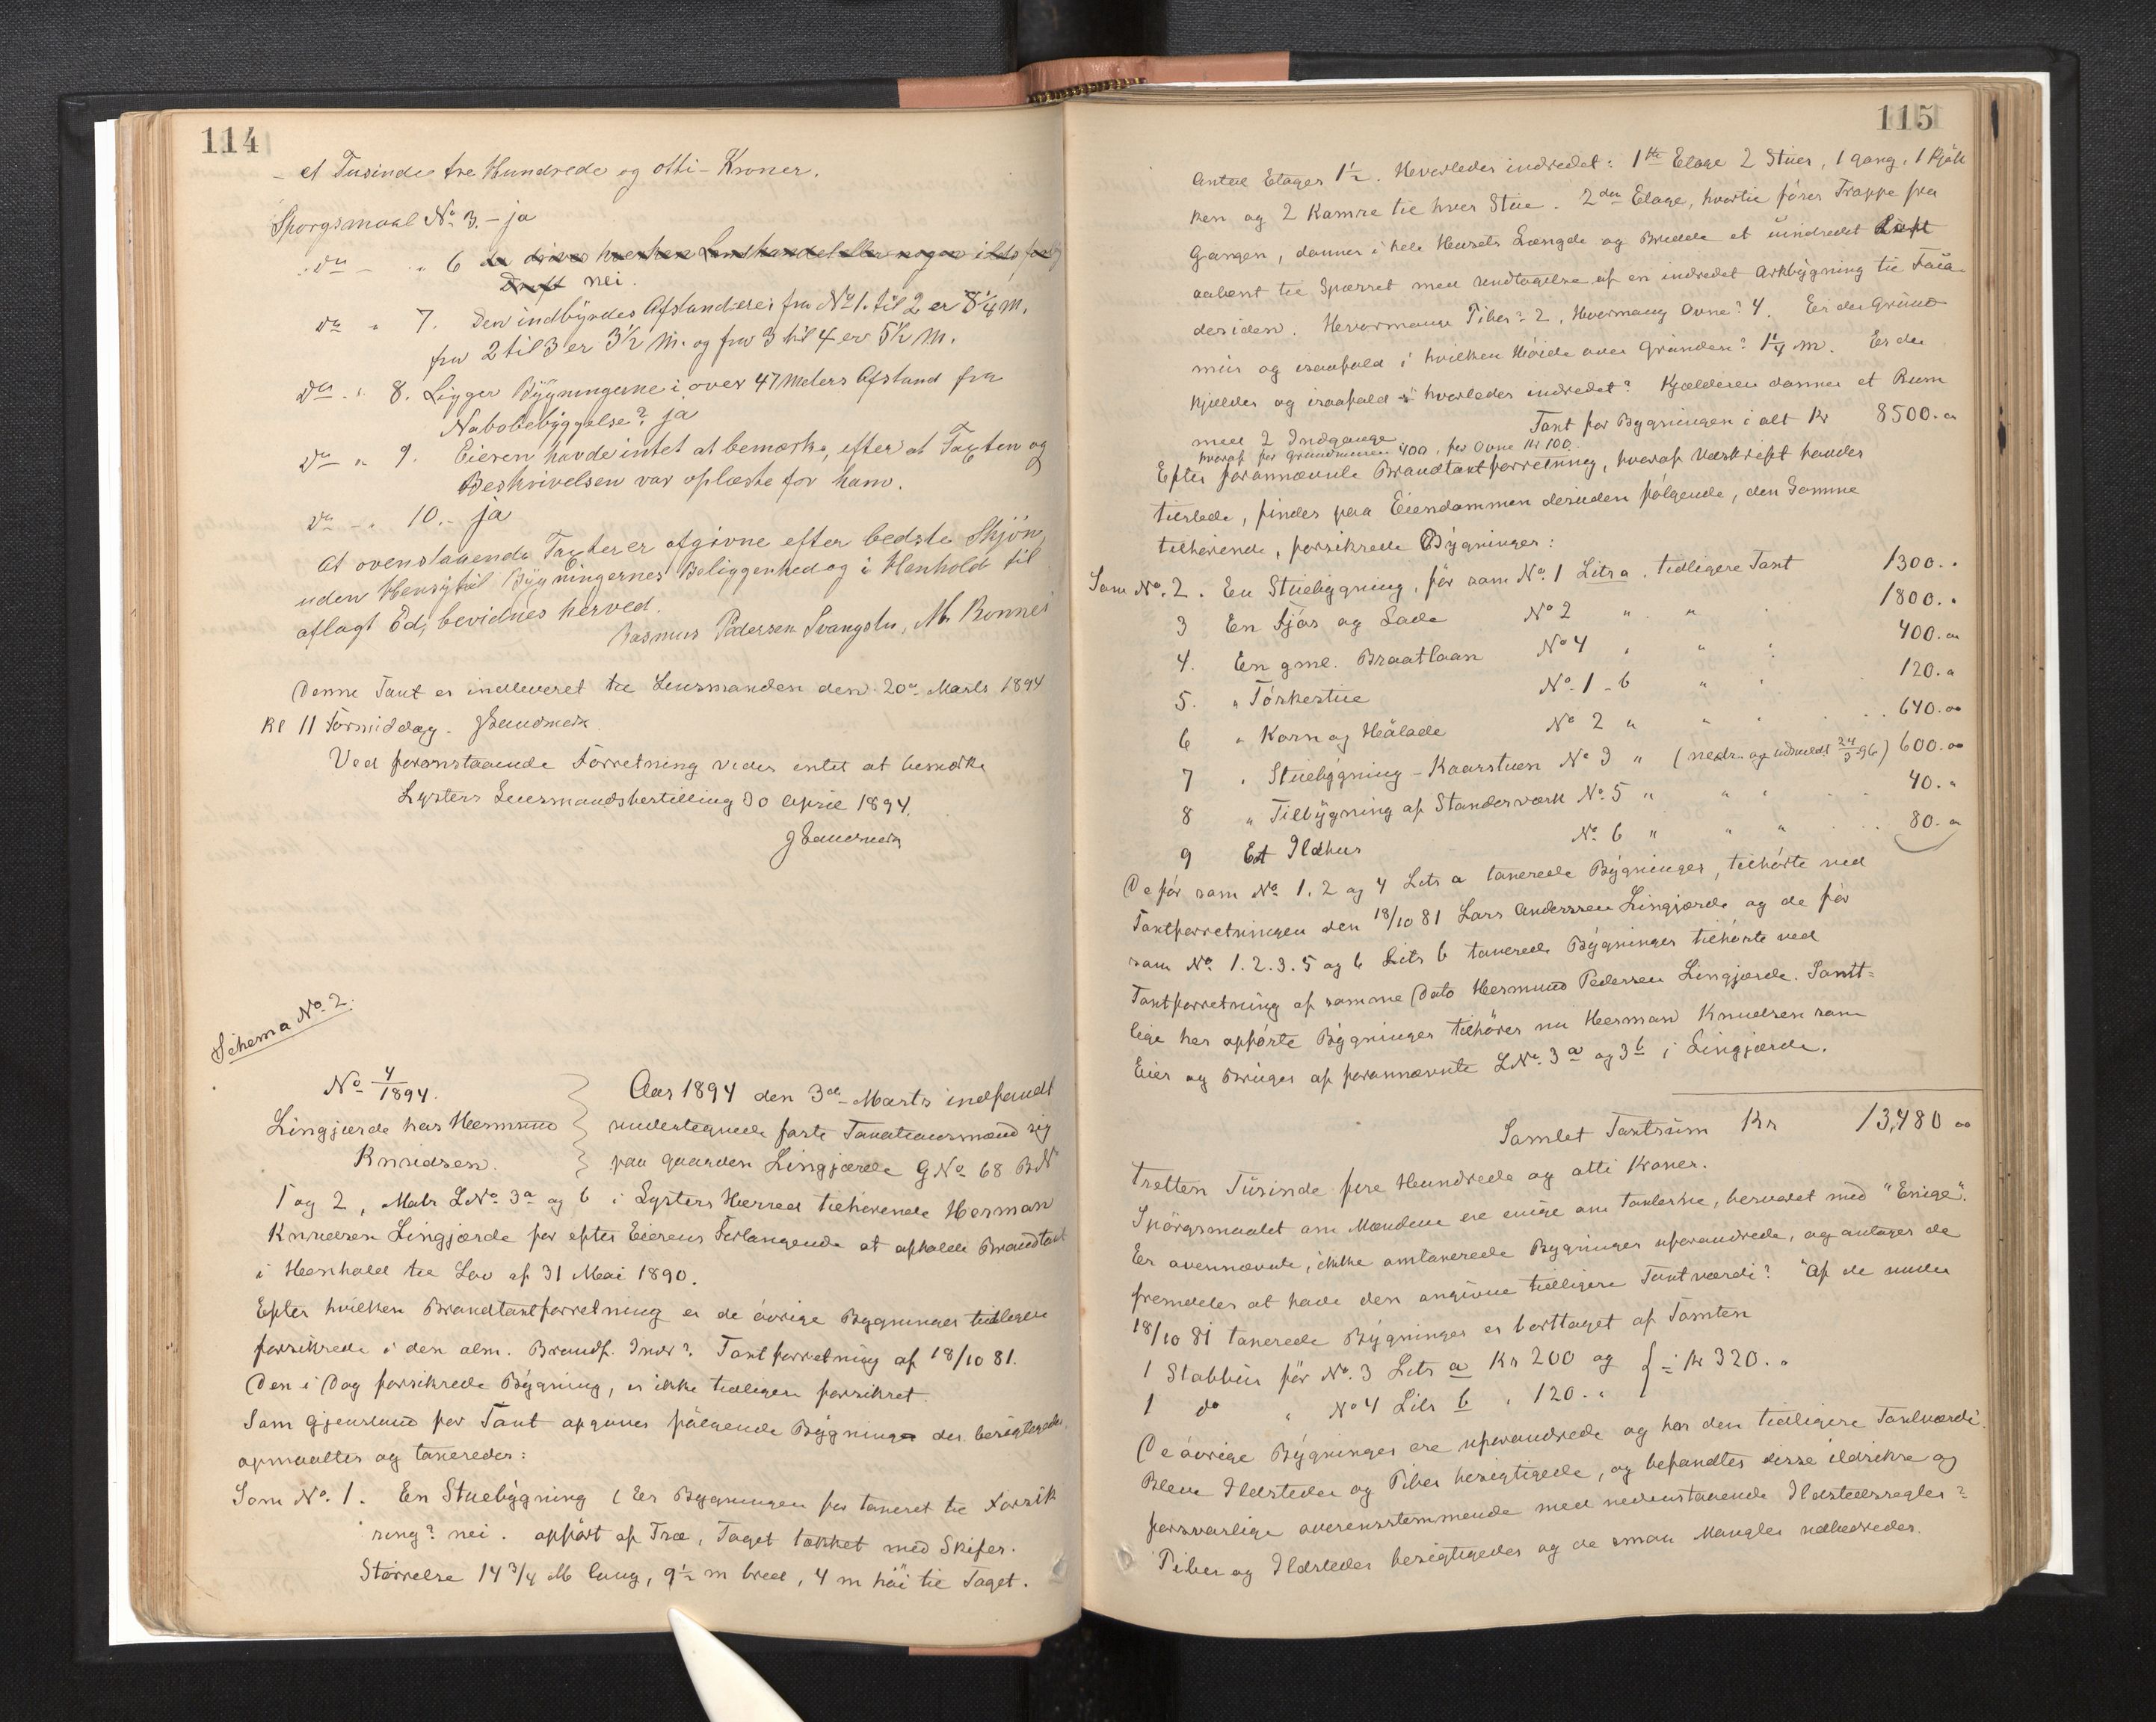 114
et Tusinde tre Hundrede og otti - Kroner.
Spørgsmaal No 3. - ja
do - " 6 nei.
do " 7. Den indbyrdes Afstand er: fra No 1. til 2 er 8¼ M.
fra 2 til 3 er 3½ M. og fra 3 til 4 er 5½ M.
do " 8. Ligger Bygningerne i over 47 Meters Afstand fra
Nabobebyggelse? ja
do " 9. Eieren havde intet at bemærke, efter at Taxten og
Beskrivelsen var oplæste for ham.
do - " 10. - ja
At ovenstaaende Taxter er afgivne efter bedste Skjøn,
uden Hensyn til Bygningernes Beliggenhed og i Henhold til
aflagt Ed, bevidnes herved.
Rasmus Pedersen M. Bonnei
Denne Taxt er indleveret til Lensmanden den 20de Marts 1894
Kl 11 Formiddag.
Ved foranstaaende Forretning vides intet at bemærke
Lysters Lensmandsbestilling 30 April 1894.
Schema No 2.
No 4/1894.
Lingjærde hos Hermund
Knudsen.
Aar 1894 den 3de Marts indfandt
undertegnede faste Taxationsmænd sig
paa Gaarden Lingjærde GNo 68 BN
1 og 2, Matr LNo 3a og b i Lysters Herred tilhørende Herman
Knudsen Lingjærde for efter Eierens Forlangende at afholde Brandtaxt
i Henhold til Lov af 31 Mai 1890.
Efter hvilken Brandtaxtforretning er de øvrige Bygninger tidligere
forsikrede i den alm. Brandf. Indr? Taxtforretning af 18/10 81.
Den i Dag forsikrede Bygning, er ikke tidligere forsikret.
Som Gjenstand for Taxt opgives følgende Bygninger der besigtigedes,
opmaaltes og taxeredes:
Som No. 1. En Stuebygning (Er Bygningen før taxeret til Forsik
ring? nei. opført af Træ, Taget tækket med Skifer.
Størrelse 14 3/4 M lang, 9½ m bred, 4 m høi til Taget.
115
Antal Etager 1½. Hvorledes indredet: 1ste Etage 2 Stuer, 1 gang, 1 Kjøk
ken og 2 Kamre til hver Stue. 2den Etage, hvortil fører Trappe fra
Gangen, danner i hele Husets Længde og Bredde et uindredet Loft
aabent til Sparret med Undtagelse af en indredet Arkbygning til Faca
desiden. Hvormange Piber? 2, Hvormang Ovne? 4. Er der Grund
mur og isaafald i hvilken Høide over Grunden? 1¼ m. Er der
Kjelder og isaafald hvorledes indredet? Kjælderen danner et Rum
med 2 Indgange Taxt for Bygningen i alt Kr 8500.00
hvoraf for Grundmuren 400, for Ovne Kr 100.
Efter forannævnte Brandtaxtforretning, hvoraf Udskrift havdes
tilstede, findes paa Eiendommen desuden følgende, den Samme
tilhørende, forsikrede Bygninger:
Som No. 2. En Stuebygning, før som No 1 Litr a. tidligere Taxt 1300. "
3 En Fjøs og Lade No 2 " " 1800. "
4. En gml. Braatlaan No 4 " " 400.00
5. " Tørkestue No. 1 - b " " 120. "
6 " Korn og Hølade No 2 " " 640.00
7 " Stuebygning - Kaarstuen No 3 " (nedr. og udmeldt 24/3 96) 600.00
8 " Tilbygning af Standerværk No. 5 " " 40. "
9 Et Ildhus No 6 " " 80. "
De før som No 1. 2 og 4 Litr a taxerede Bygninger, tilhørte ved
Taxtforretningen den 18/10 81 Lars Anderssen Lingjærde og de før
som No. 1. 2. 3. 5 og 6 Litr b taxerede Bygninger tilhørte ved
Taxtforretning af samme Dato Hermund Pedersen Lingjærde. Samt=
lige her opførte Bygninger tilhører nu Herman Knudsen som
Eier og Bruger af forannævnte LNo. 3a og 3b i Lingjærde.
Samlet Taxtsum Kr 13,480 00
Tretten Tusinde fire Hundrede og otti Kroner.
Spørgsmaalet om Mændene ere enige om Taxterne, besvaret med "Enige".
Er ovennævnte, ikke omtaxerede Bygninger uforandrede, og antages de
fremdeles at have den angivne tidligere Taxtværdi? Af de under
18/10 81 taxerede Bygninger er borttaget af Tomten
1 Stabbur før No. 3 Litr a Kr 200 og } = Kr 320. "
1 do " No 4 Litr b " 120. "
De øvrige Bygninger ere uforandrede og har den tidligere Taxtværdi.
Bleve Ildsteder og Piber besigtigede, og befandtes disse ildsikre og
forsvarlige overensstemmende med nedenstaaende Ildstedsregler?
Piber og Ildsteder besigtigedes og de smaa Mangler udbedredes.